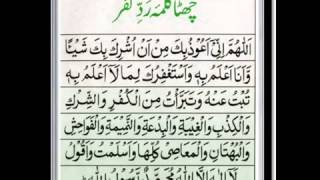 چھٹا کلمہ ردِّ کفر
اَللّٰهُمَّ اِنِّیْ اَعُوْذُ بِكَ مِنْ اَنْ اُشْرِكَ بِكَ شَیْئًا
وَّاَنَا اَعْلَمُ بِهٖ وَاَسْتَغْفِرُكَ لِمَا لَا اَعْلَمُ بِهٖ
تُبْتُ عَنْهُ وَتَبَرَّاْتُ مِنَ الْكُفْرِ وَالشِّرْكِ
وَالْكِذْبِ وَالْغِیْبَةِ وَالْبِدْعَةِ وَالنَّمِیْمَةِ وَالْفَوَاحِشِ
وَالْبُهْتَانِ وَالْمَعَاصِیْ كُلِّهَا وَاَسْلَمْتُ وَاَقُوْلُ
لَآ اِلٰهَ اِلَّا اللّٰهُ مُحَمَّدٌ رَّسُوْلُ اللّٰهِ